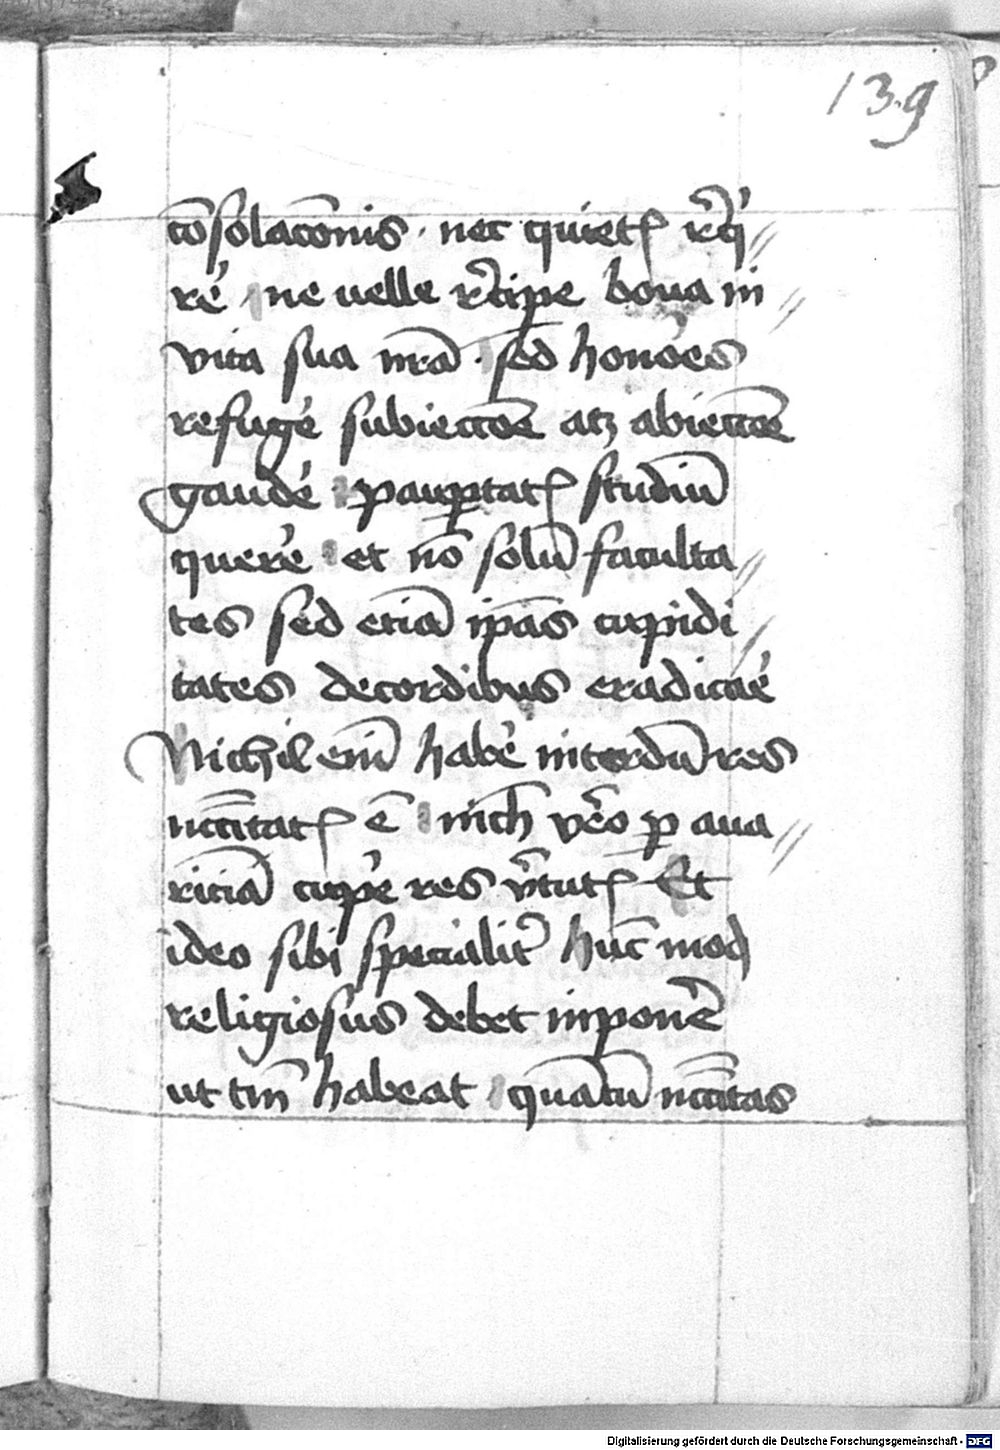 139
cōsolacōnis · nec quietꝭ r̄qͥ//
rē ne uelle r̄cipe bona in //
vita sua nrā · sed honōes
refugē subieccōe atꝫ abieccōe
gaudē pauꝑtatꝭ studiū
querē et nō solū faculta//
tes sed etiā ipās cupidi//
tates decordibus eradicaē
Nichil enī habē interdū res
nccītatꝭ ē nich̄ v̄o ꝑ aua//
riciā cupe res v̄tutꝭ Et
ideo sibi specialit̄ hūc mod
religiosus debet inponē
ut tm̄ habeat quātū nccītas
Digitalisierung gefördert durch die Deutsche Forschungsgemeinschaft - DFG